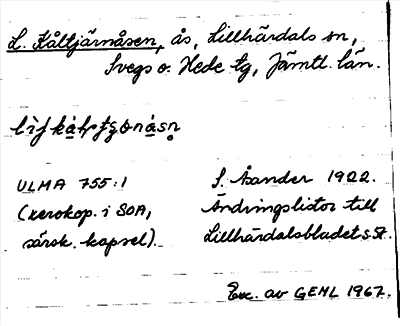 L. Kåltjärnåsen, ås, Lillhärdals sn,
Svegs o. Hede tg, Jämtl. län.
ULMA 755:1
(xerokop. i SOA,
särsk. kapsel).
S. Åsander 1922.
Ändringslistor till
Lillhärdalsbladet s. 58.
Exc. av GEHL 1967.